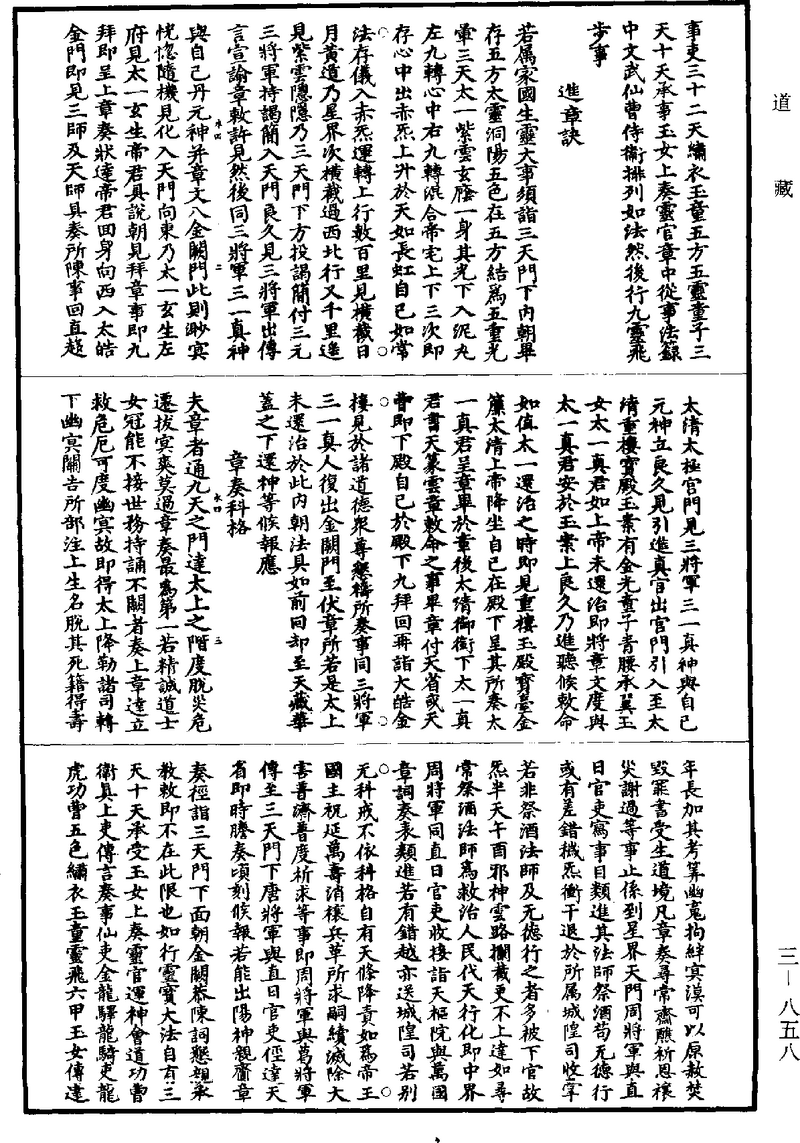 道藏
事吏三十二天繡衣玉童五方五靈童子三
天十天承事玉女上奏靈官章中從事法籙
中文武仙曹侍衞排列如法然後行九靈飛
步事
進章訣
若属家國生靈大事須詣三天門下內朝畢
存五方太靈洞陽五色在五方結爲五重光
暈三天太一紫雲玄廕一身其光下入泥丸
左九轉心中右九轉混合帝宅上下三次即
存心中出赤炁上升於天如長虹自己如常
法存儀入赤炁運轉上行數百里見橫截日
月黃道乃星界次橫截過西北行又千里遙
見紫雲隱隱乃三天門下方投謁簡付三元
三將軍持謁簡入天門良久見三將軍出傳
言宣諭章敕許見然後同三將軍三一真神
與自己丹元神幷章文入金闕門此則眇冥
恍惚隨機見化入天門向東乃太一玄生左
府見太一玄生帝君具說朝見拜章事即九
拜即呈上章奏狀達帝君回身向西入太皓
金門即見三師及天師具奏所陳事回直趍
太清太極宮門見三將軍三一真神與自己
元神立良久見引進真官出宮門引入至太
清重樓寶殿玉案有金光童子青腰承翼玉
女太一真君如上帝未還治即將章文度與
太一真君安於玉案上良久乃進聽候敕命
如值太一還治之時即見重樓玉殿寶臺金
簾太清上帝降坐自己在殿下呈其所奏太
一真君呈章畢於章後太清御銜下太一真
君書天篆雲章敕命之事畢章付天省或天
曹即下殿自己於殿下九拜回再詣大皓金
樓見於諸道德衆尊懇禱所奏事同三將軍
三一真人復出金闕門至伏章所若是太上
未還治於此內朝法具如前回却至天藏華
蓋之下還神等候報應
章奏科格
夫章者通九天之門達太上之階度脫災危
遷拔㝠爽莫過章奏最爲第一若精誠道士
女冠能不接世務持誦不闕者奏上章達立
救危厄可度幽㝠故即得太上降勒諸司轉
下幽㝠關告所部注上生名脫其死籍得壽
年長加其考筭幽寃拘絆㝠漠可以原赦焚
毀罪書受生道境凡章奏尋常齋醮祈恩禳
災謝過等事止係到星界天門周將軍與直
日官吏寫事目類進其法師祭酒苟无德行
或有差錯穢炁衝干退於所属城隍司收掌
若非祭酒法師及无德行之者多被下官故
炁半天午酉邪神雲路攔截更不上達如尋
常祭酒法師爲救治人民代天行化即中界
周將軍同直日官吏收接詣天樞院與萬國
章詞奏表類進若有錯越亦送城隍司若別
无科戒不依科格自有天條降責如爲帝王
國主祝延萬壽消禳兵革所求嗣續滅除大
害普濟普度祈求等事即周將軍與葛將軍
傳至三天門下唐將軍與直日官吏徑達天
省即時謄奏頃刻候報若能出陽神親齎章
奏徑詣三天門下面朝金闕恭陳詞懇親承
敎敕即不在此限也如行靈寶大法自有三
天十天承受玉女上奏靈官運神會道功曹
衞具上吏傳言奏事仙吏金龍驛龍騎吏龍
虎功曹五色繡衣玉童靈飛六甲玉女傳達
三一八五八